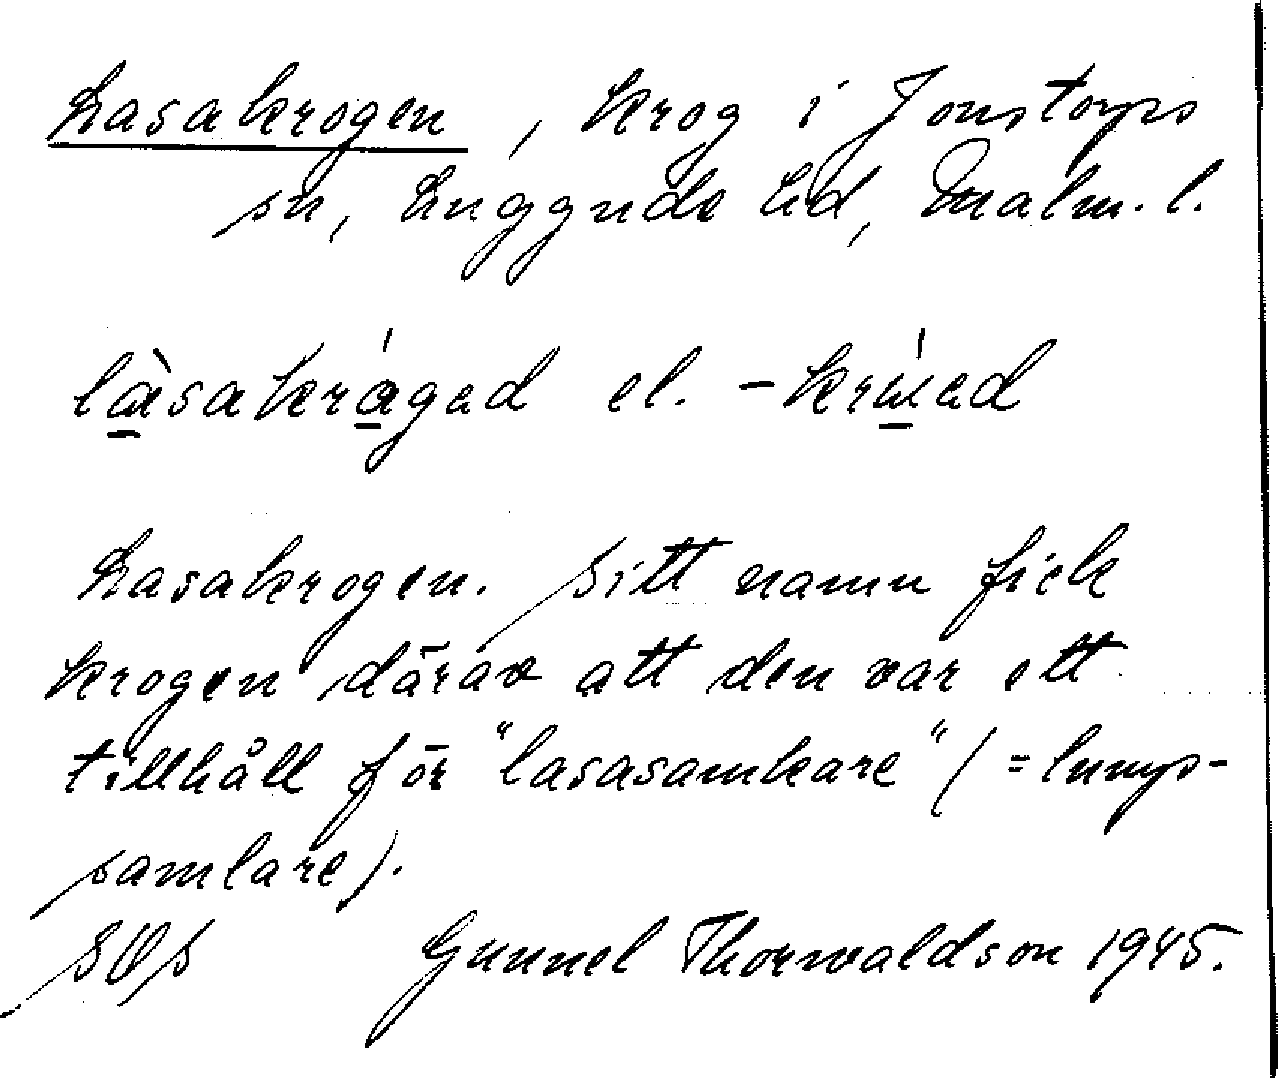 Lasakrogen, krog i Jonstorps
sn, Luggude hd, Malm. l.
làsakrágad el. -kri̇́ead
Lasakrogen. Sitt namn fick
krogen därav att den var ett
tillhåll för "lasasamkare" (= lump-
samlare).
SOS Gunnel Thorwaldson 1945.